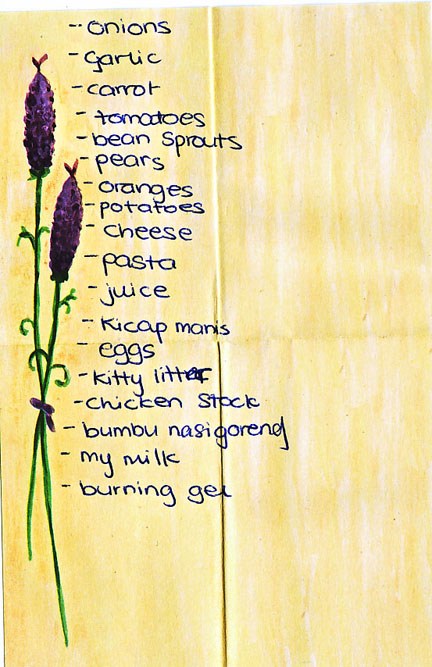 -- onions
- Garlic
- carrot
- tomatoes
- bean sprouts
- pears
- oranges
- potatoes
- cheese
- pasta
- juice
- kicap manis
- eggs
- kitty litter
- chicken stock
- bumbu nasigoreng
- my milk
- burning gel